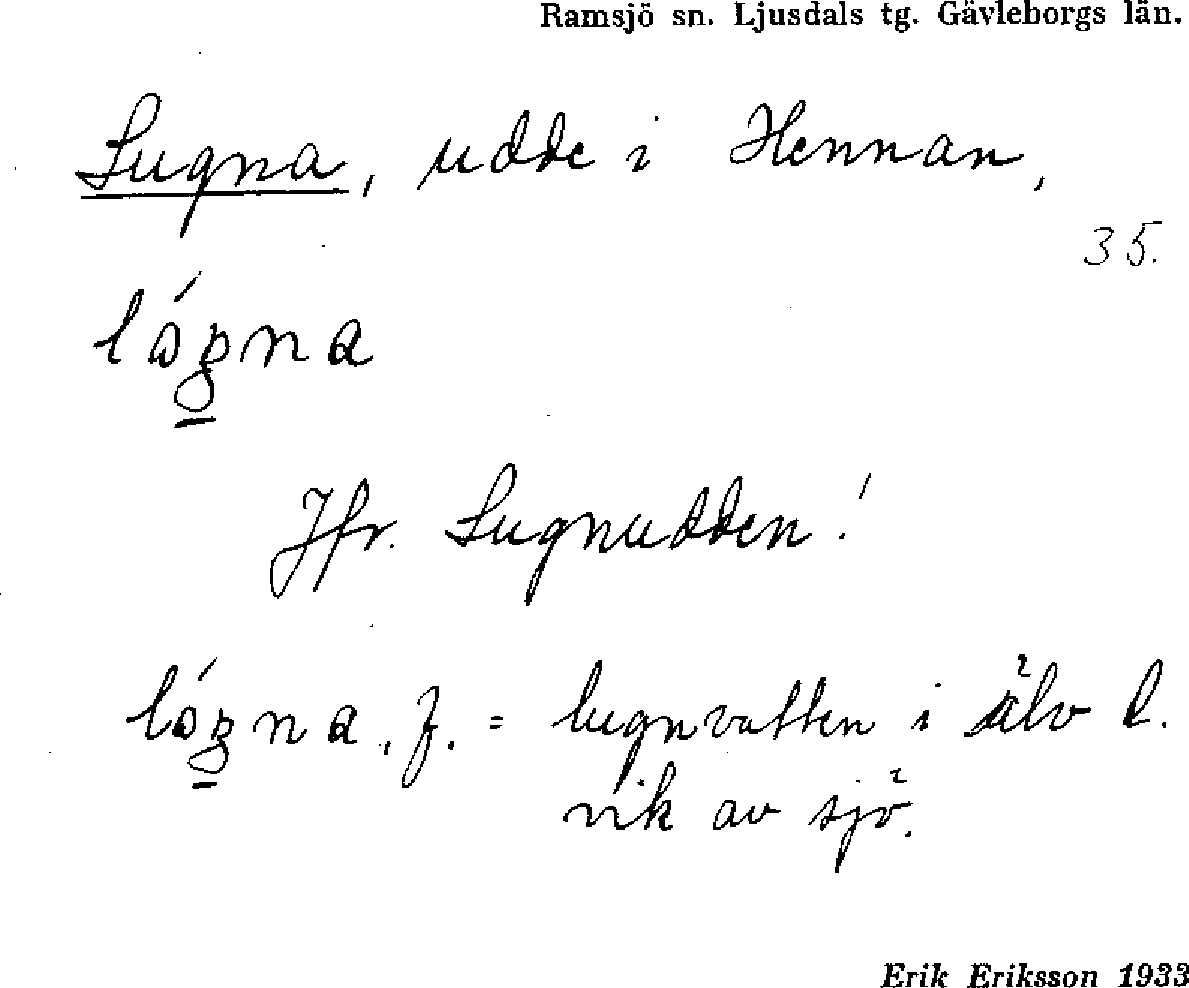 Ramsjö sn. Ljusdals tg. Gävleborgs län.
Lugna, udde i Hennan,
35.
lógna
Jfr. Lugnudden!
lógna, f. = lugnvatten i älv l.
vik av sjö.
Erik Eriksson 1933